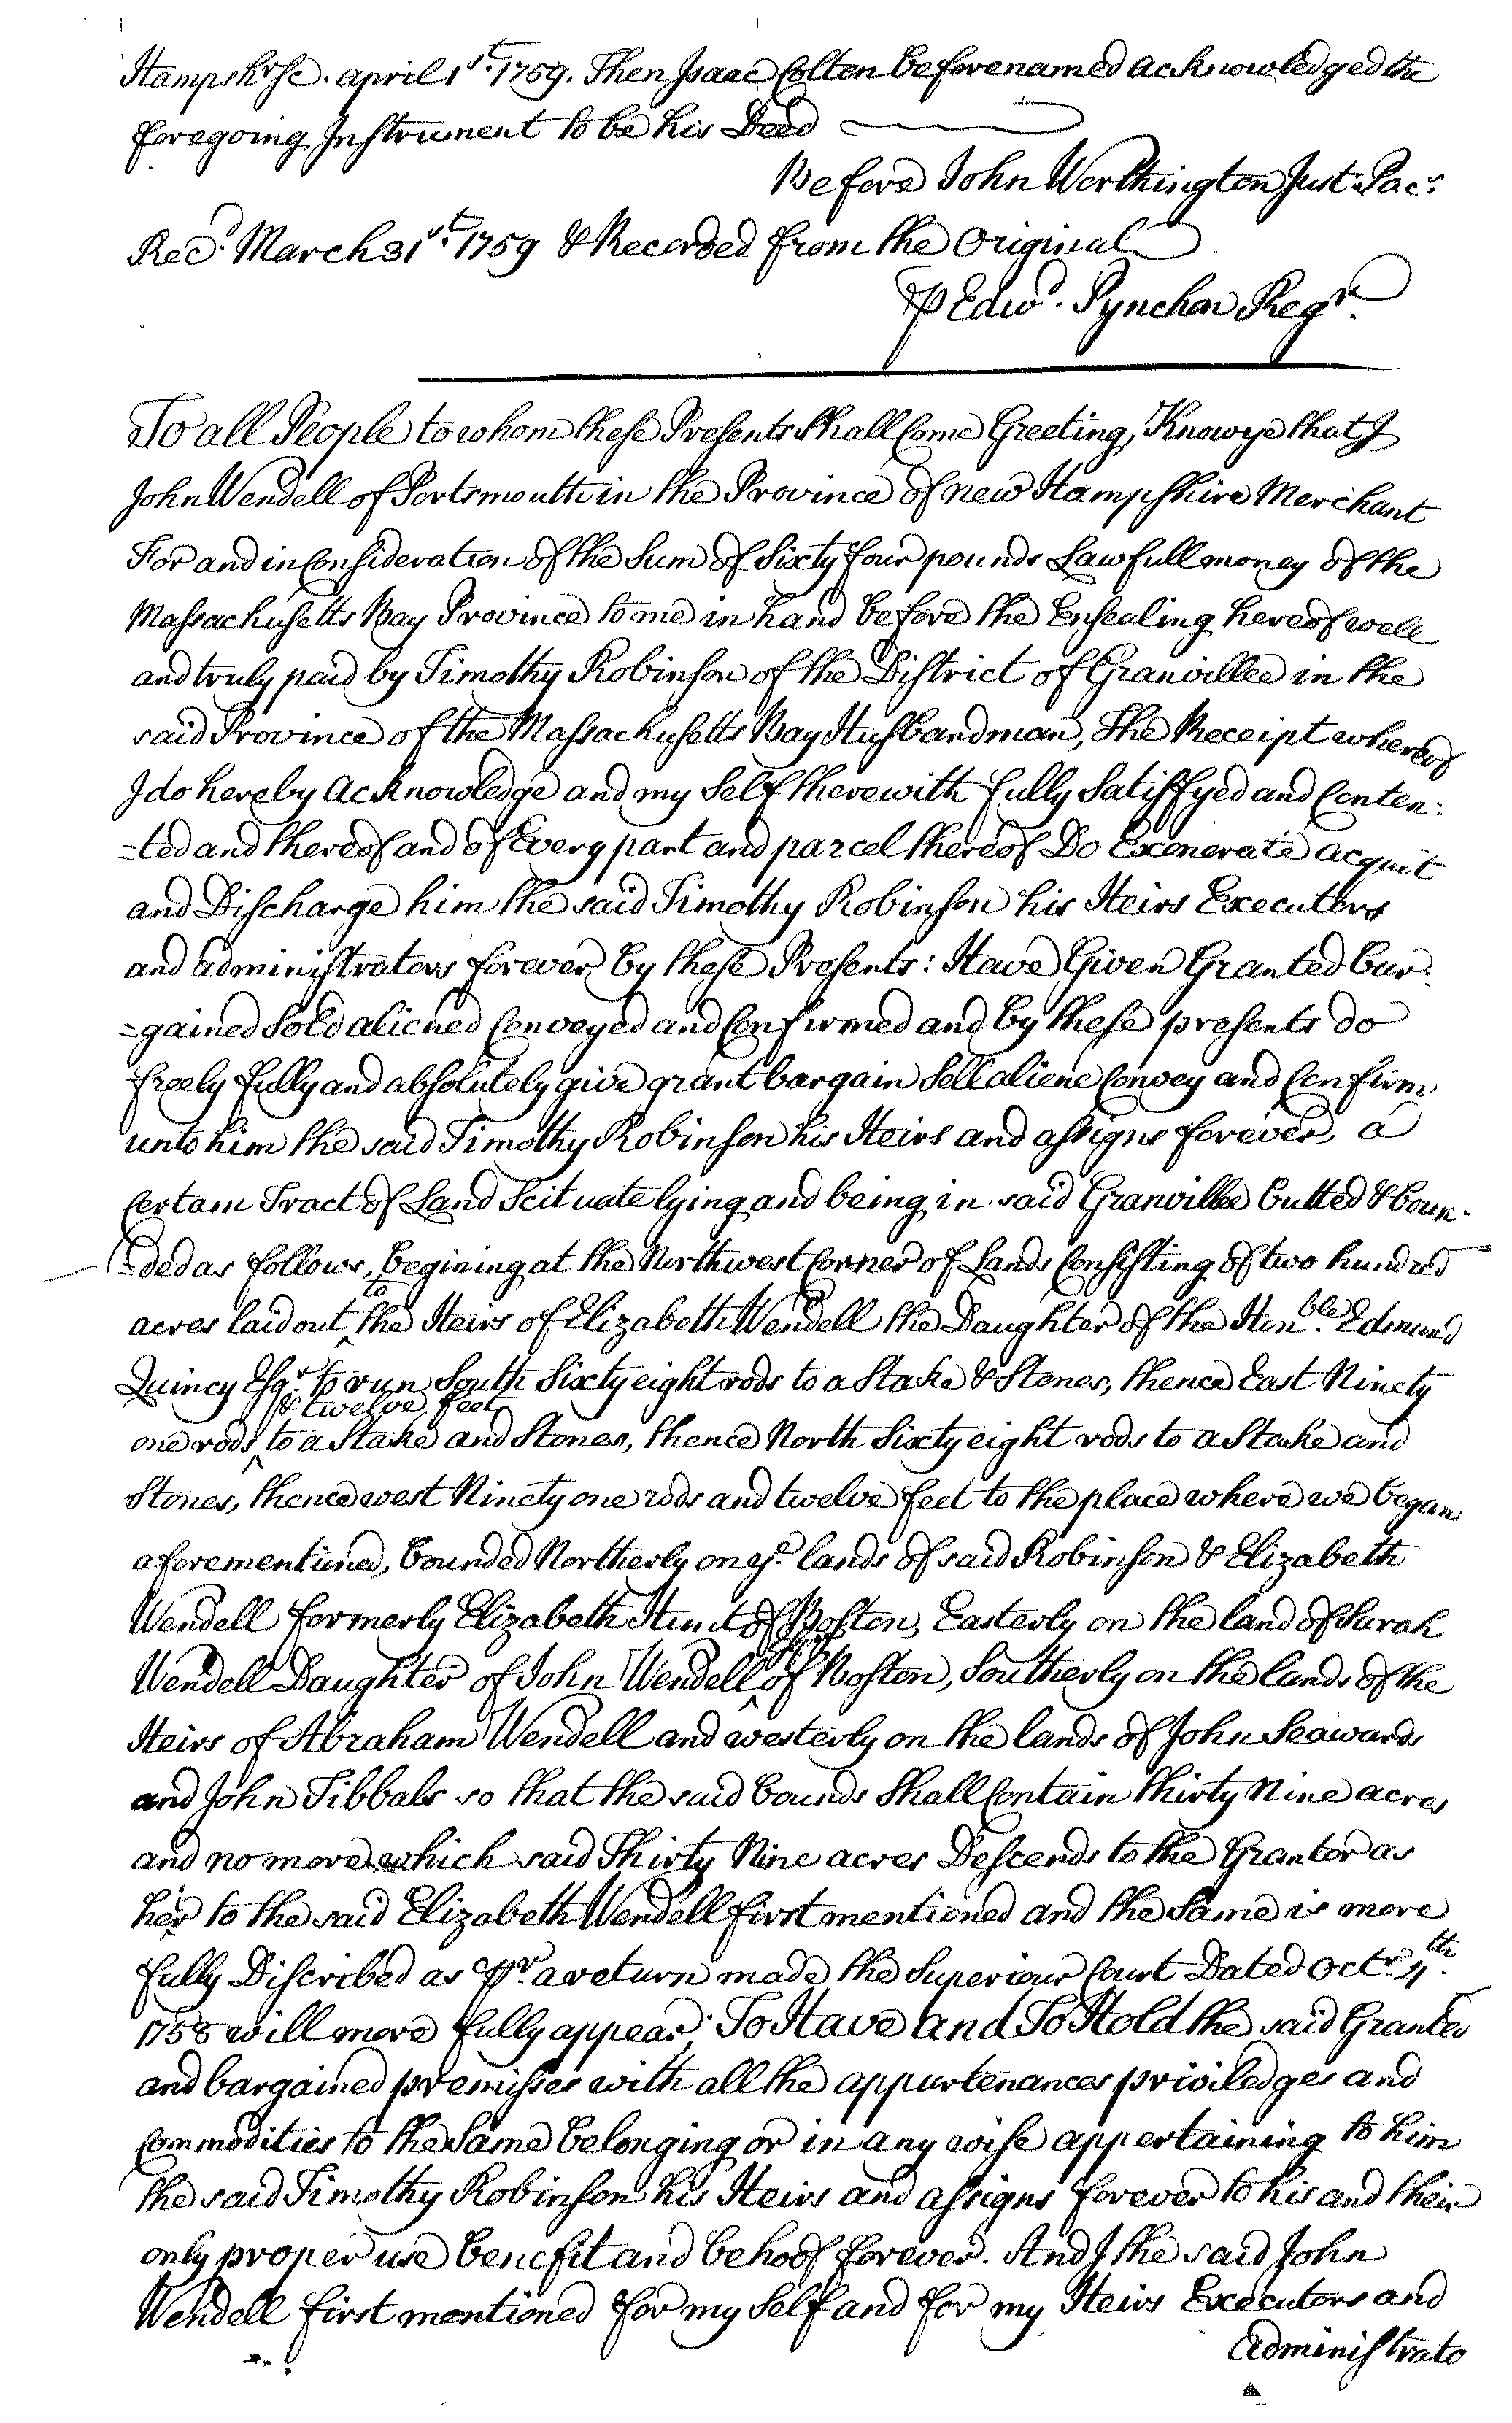 Hampshr. Sc. april 1st. 1759. Then Isaac Colten beforenamed acknowledged the
foregoing Instrument to be his Deed
Before John Worthington Just. Pacs.
Recd. March 31st. 1759 & Recorded from the Original
⅌ Edwd. Pynchon Regr.
To all People to whom these Presents shall Come Greeting, Know ye that I
John Wendell of Portsmouth in the Province of new Hampshire Merchant
For and in Consideration of the Sum of Sixty four pounds Lawfull money of the
Massachusetts Bay Province to me in hand before the Ensealing hereof well
and truly paid by Timothy Robinson of the District of Granvillee in the
said Province of the Massachusetts Bay Husbandman, The Receipt whereof
I do hereby acknowledge and my Self therewith fully Satisfyed and Conten:
=ted and thereof and of Every part and parcel thereof Do Exonerate acquit
and Discharge him the said Timothy Robinson his Heirs Executors
and administrators forever by these Presents: Have Given Granted bar:
=gained Sold aliened Conveyed and Confirmed and by these presents do
freely fully and absolutely give grant bargain Sell aliene Convey and Confirm
unto him the said Timothy Robinson his Heirs and assigns forever, a
Certain Tract of Land Scituate lying and being in said Granville butted & boun-
=ded as follows, begining at the Northwest Corner of Lands Consisting of two hundred
acres laid out to the Heirs of Elizabeth Wendell the Daughter of the Honble. Edmund
Quincy Esqr. to run South Sixty eight rods to a Stake & Stones, thence East Ninety
one rods & twelve feet to a Stake and Stones, thence North Sixty eight rods to a Stake and
Stones, thence west Ninety one rods and twelve feet to the place where we began
aforementioned, bounded Northerly on ye. lands of said Robinson & Elizabeth
Wendell formerly Elizabeth Hunt of Boston, Easterly on the land of Sarah
Wendell Daughter of John Wendell Esqr of Boston, Southerly on the lands of the
Heirs of Abraham Wendell and westerly on the lands of John Seawards
and John Tibbals so that the said bounds Shall Contain thirty Nine acres
and no more which said Thirty Nine acres Descends to the Grantor as
heir to the said Elizabeth Wendell first mentioned and the Same is more
fully Discribed as ⅌r. a return made the Superiour Court Dated Octr. 4th.
1758 will more fully appear. To Have and To Hold the said Granted
and bargained premisses with all the appurtenances priviledges and
Commodities to the Same belonging or in any wise appertaining to him
the said Timothy Robinson his Heirs and assigns forever to his and their
only proper use benefit and behoof forever. And I the said John
Wendell first mentioned for my Self and for my Heirs Executors and
Administrato